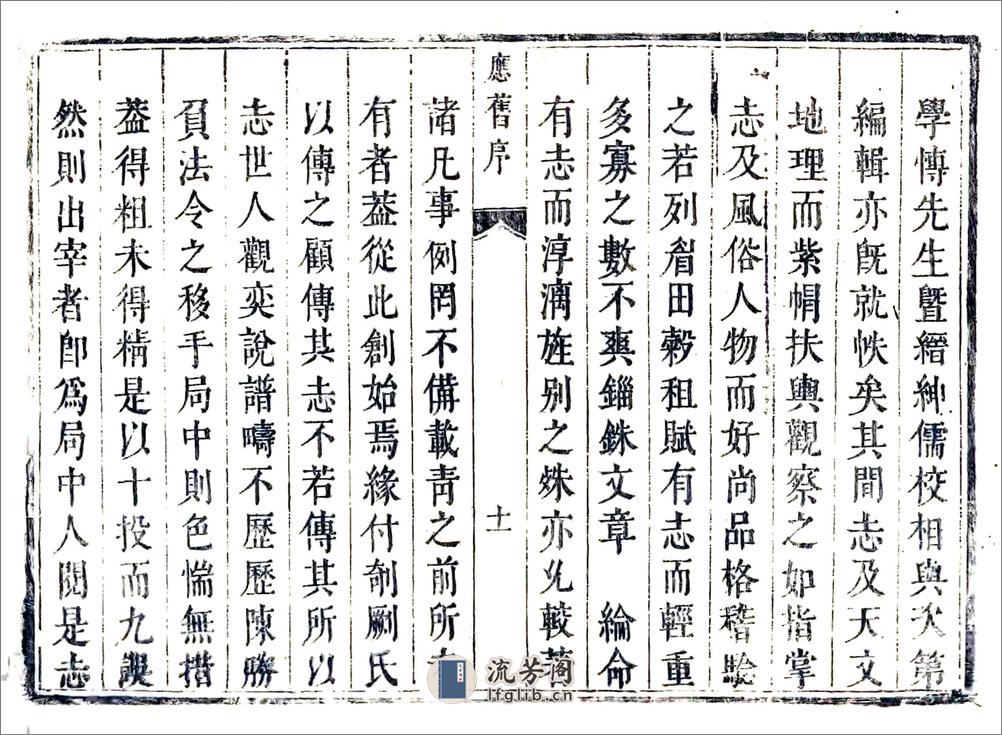 學博先生暨縉紳儒校相與次第
編輯亦既就帙矣其間志及天文
地理而紫帽扶輿觀察之如指掌
志及風俗人物而好尚品格稽驗
之若列眉田穀租賦有志而輕重
多寡之數不爽錙銖文章 綸命
有志而淳漓旌别之殊亦以較著
應舊序
十一
諸凡事例罔不備載青之前所
有者葢從此創始焉緣付剞劂氏
以傳之顧傳其志不若傳其所以
志世人觀奕說譜疇不歷歷陳勝
負法令之移乎局中則色惴無措
葢得粗未得精是以十投而九誤
然則出宰者卽爲局中人閱是志
流芳阁
lfglib.cn